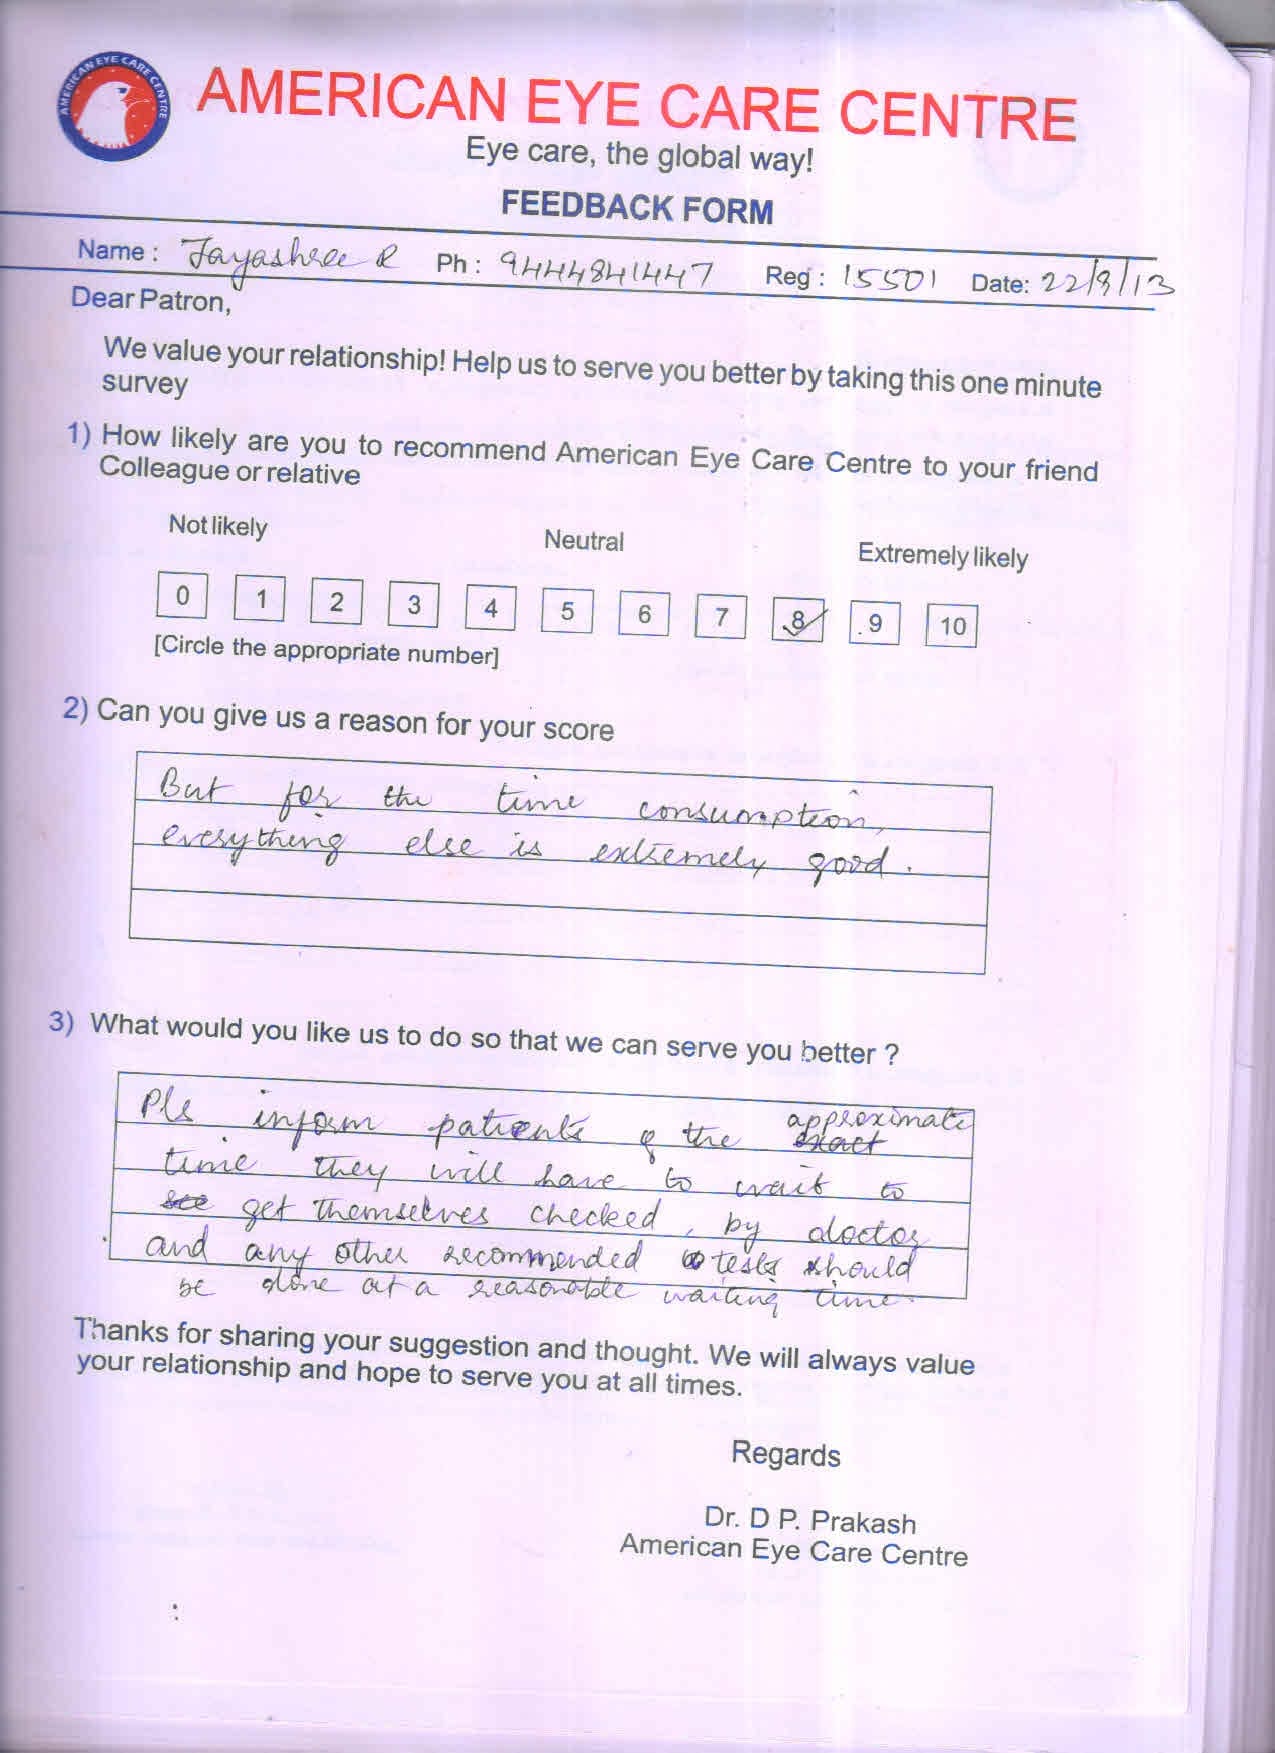 AMERICAN EYE CARE CENTRE
AMERICAN EYE CARE CENTRE
Eye care, the global way!
FEEDBACK FORM
Name : Jayashree R Ph : 9444841447 Reg : 15501 Date: 22/9/13
Dear Patron,
We value your relationship! Help us to serve you better by taking this one minute
survey
1) How likely are you to recommend American Eye Care Centre to your friend
Colleague or relative
Not likely Neutral Extremely likely
0 1 2 3 4 5 6 7 8 9 10
[Circle the appropriate number]
2) Can you give us a reason for your score
But for the time consumption,
everything else is extremely good.
3) What would you like us to do so that we can serve you better ?
approximate
Pls inform patients of the exact
time they will have to wait to
see get themselves checked, by doctor
and any other recommended tests should
be done at a reasonable waiting time.
Thanks for sharing your suggestion and thought. We will always value
your relationship and hope to serve you at all times.
Regards
Dr. D P. Prakash
American Eye Care Centre